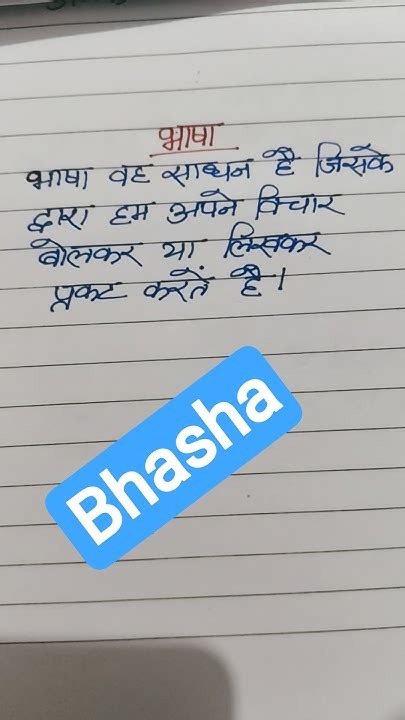 भाषा
भाषा वह साधन है जिसके
द्वारा हम अपने विचार
बोलकर या लिखकर
प्रकट करतें है।
Bhasha